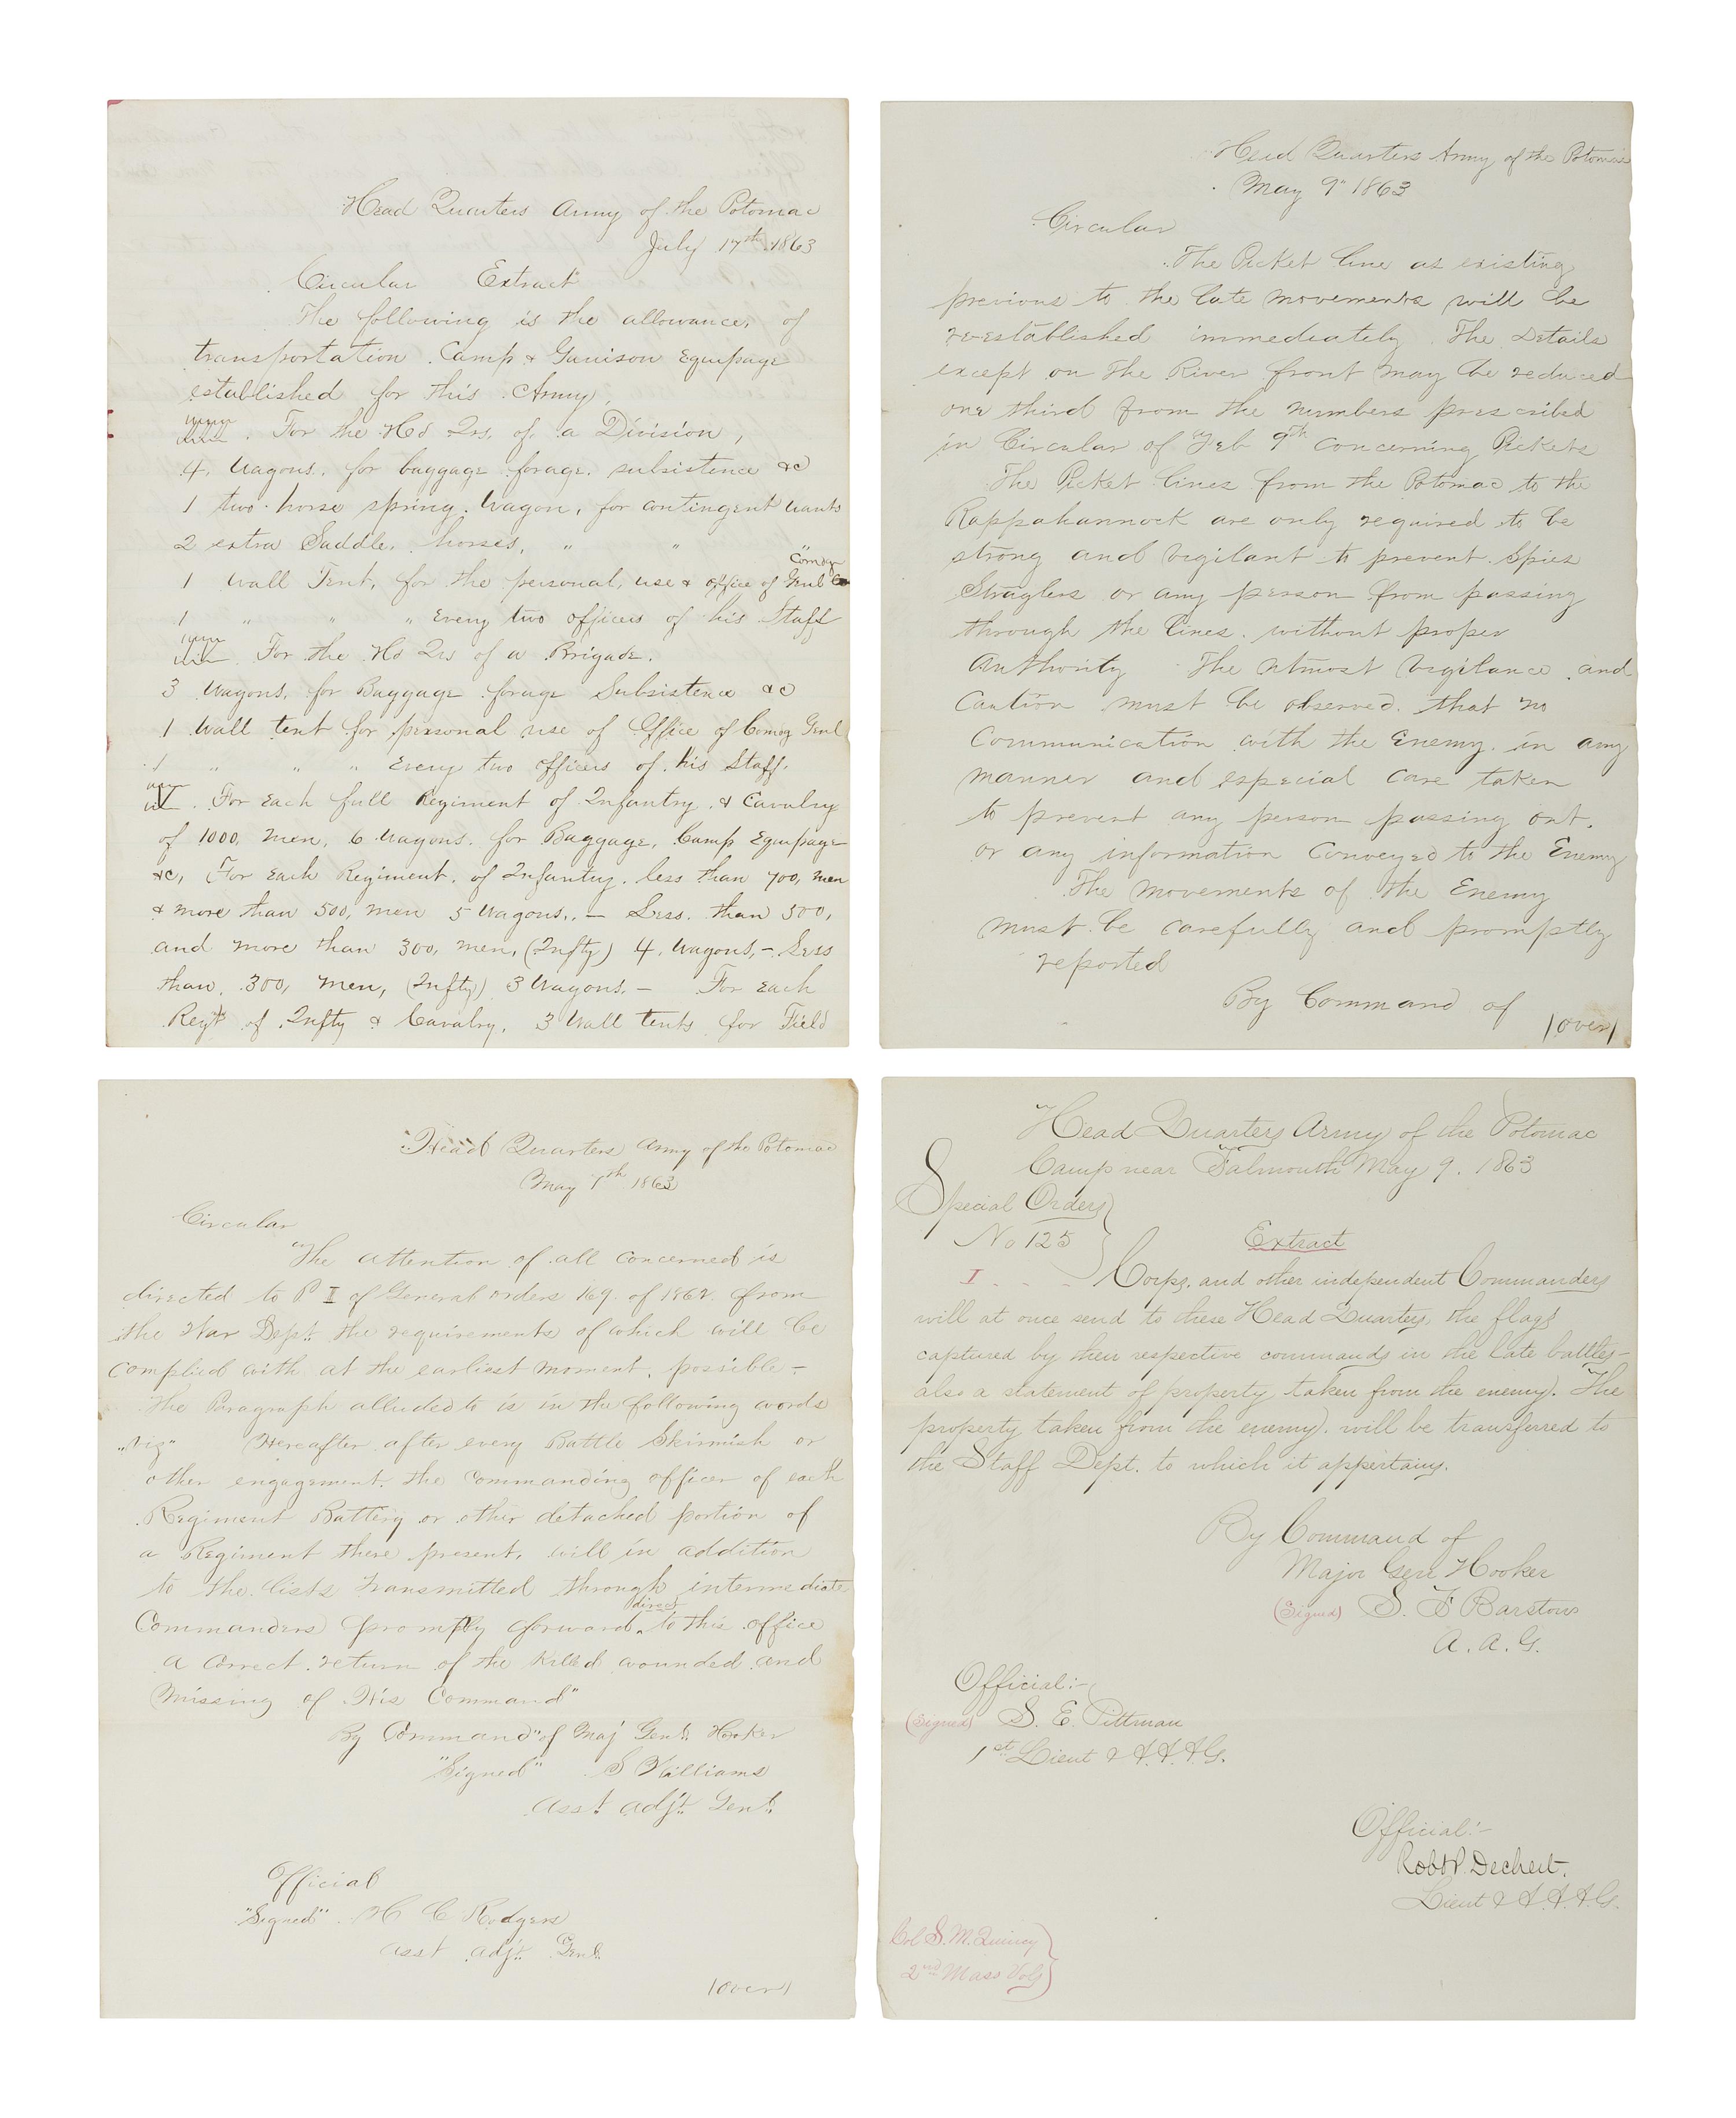 Head Quarters Army of the Potomac
July 17th 1863
Circular Extract
The following is the allowance, of
transportation Camp & Garrison Equipage
established for this Army,
For the Hd Qrs. of a Division,
4, Wagons, for baggage forage, subsistence &c
1 two horse spring Wagon, for contingent wants
2 extra Saddle, horses, " " "
Comdg
1 Wall Tent, for the personal, use & office of Genl
1 " " " Every two officers of his Staff
For the Hd Qrs of a Brigade.
3 Wagons, for Baggage forage Subsistence &c
1 Wall tent for personal use of Office of Comdg Genl
1 " " " Every two officers of his Staff.
IV. For Each full Regiment of Infantry & Cavalry
of 1000, men, 6 Wagons, for Baggage, Camp Equipage
&c, For Each Regiment, of Infantry, less than 700, men
& more than 500, men 5 Wagons,. — Less. than 500,
and more than 300, men, (Infty) 4, Wagons, – Less
than, 300, men, (Infty) 3 Wagons. — For Each
Regt of Infty & Cavalry, 3 Wall tents for Field
Head Quarters Army of the Potomac
May 9" 1863
Circular
The Picket line as existing
previous to the late movements will be
reestablished immediately. The Details
except on the River front may be reduced
one third from the numbers prescribed
in Circular of Feb 9th Concerning Pickets
The Picket lines from the Potomac to the
Rappahannock are only required to be
strong and vigilant to prevent Spies
Straglers or any person from passing
through the lines. without proper
Authority The utmost Vigilance and
Caution must be observed. that no
Communication with the Enemy. in any
manner and especial care taken
to prevent any person passing out.
or any information Conveyed to the Enemy
The movements of the Enemy
must be carefully and promptly
reported
By Command of
(over)
Head Quarters Army of the Potomac
May 7th 1863
Circular
The attention of all concerned is
directed to P II of General orders 169 of 1862 from
the War Dept. the requirements of which will be
complied with at the earliest moment, possible –
The Paragraph alluded to is in the following words
"viz" Hereafter after every Battle Skirmish or
other engagement. the Commanding officer of each
Regiment Battery or other detached portion of
a Regiment there present, will in addition
to the lists transmitted through intermediate
direct
Commanders promptly forward to this office
a correct return of the Killed wounded and
Missing of His Command"
By Command" of Maj Genl. Hooker
"Signed" S Williams
Asst. Adjt. Genl.
Official
"Signed" H C Rodgers
Asst Adjt. Genl.
(over)
Head Quarters Army of the Potomac
Camp near Falmouth May 9. 1863
Special Orders
No 125
Extract
I . - - Corps, and other independent Commanders
will at once send to these Head Quarters, the flags
captured by their respective commands in the late battles –
also a statement of property taken from the enemy. The
property taken from the enemy, will be transferred to
the Staff Dept. to which it appertains.
By Command of
Major Gen Hooker
(Signed) S. F Barstow
A. A. G.
Official:–
(Signed) S. E. Pittman
1st Lieut & A.A.A.G.
Official:–
Robt P. Dechert.
Lieut & A.A.A.G.
Col S. M. Quincy
2nd Mass Vols